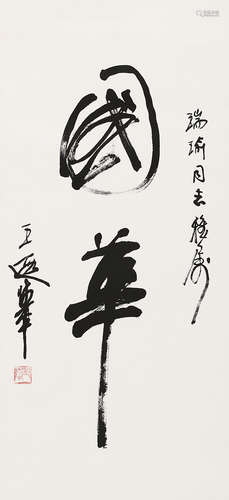 國華
瑞瑜同志雅属
王遐举